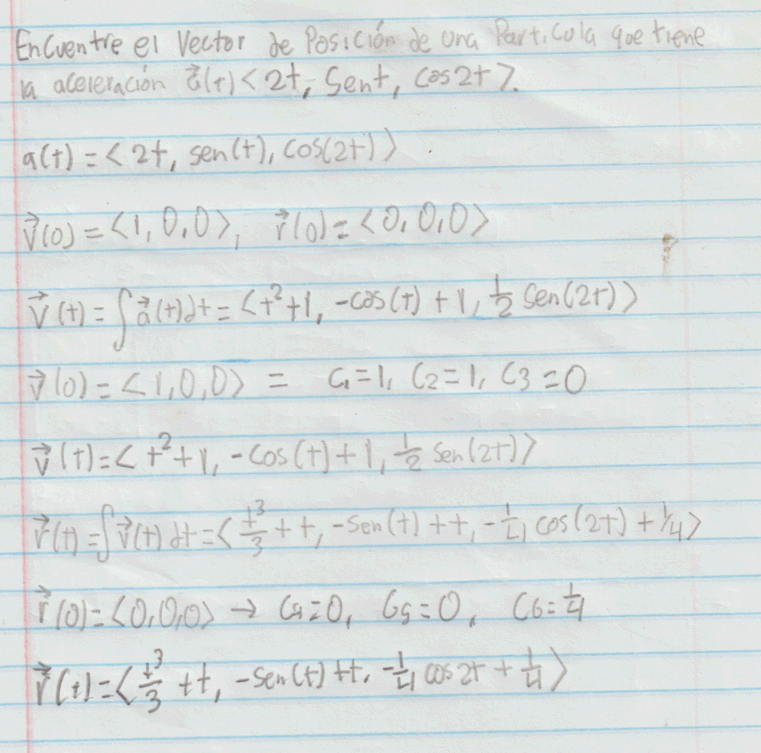 Encuentre el Vector de Posición de una Particula que tiene
la aceleración a⃗(t) <2t, Sent, Cos2t>.
a(t) = <2t, sen(t), cos(2t)>
v⃗(0) = <1, 0, 0>, r⃗(0) = <0, 0, 0>
v⃗(t) = ∫a⃗(t)dt = <t²+1, -cos(t) + 1, 1/2 Sen(2t)>
v⃗(0) = <1, 0, 0> = C₁=1, C₂=1, C₃=0
v⃗(t) = <t²+1, -cos(t)+1, 1/2 Sen(2t)>
r⃗(t) = ∫v⃗(t) dt = <t³/3 + t, -sen(t) + t, -1/4 cos(2t) + 1/4>
r⃗(0) = <0,0,0> → C₄=0, C₅=0, C₆=1/4
r⃗(t) = <t³/3 + t, -sen(t) + t, -1/4 cos 2t + 1/4>